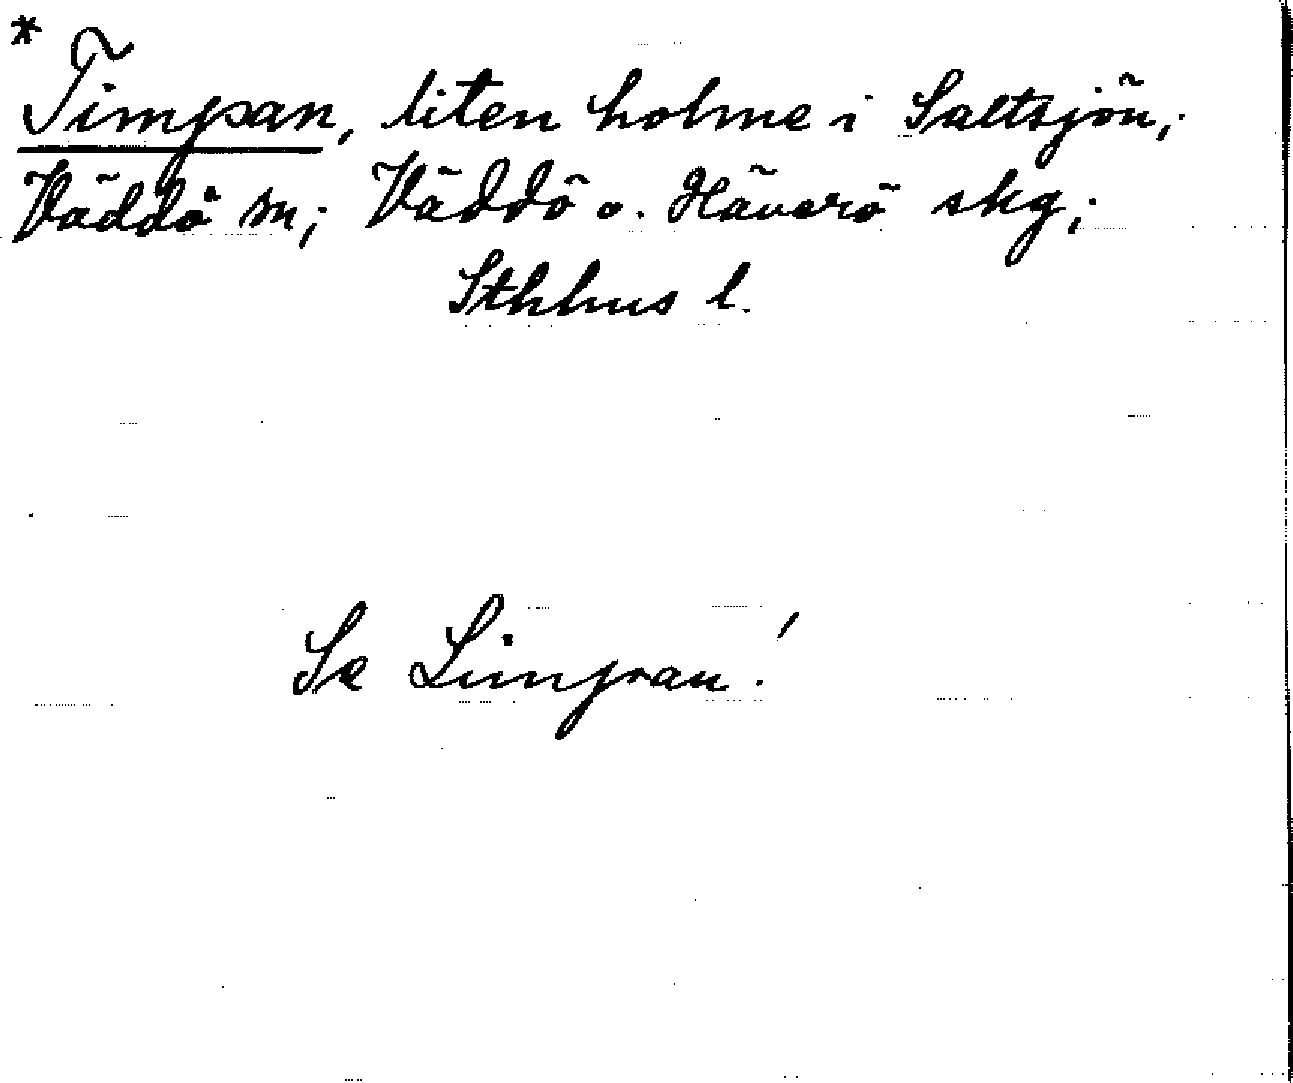 * Timpan, liten holme i Saltsjön,
Väddö sn; Väddö o. Häverö skg;
Sthlms l.
Se Limpan!